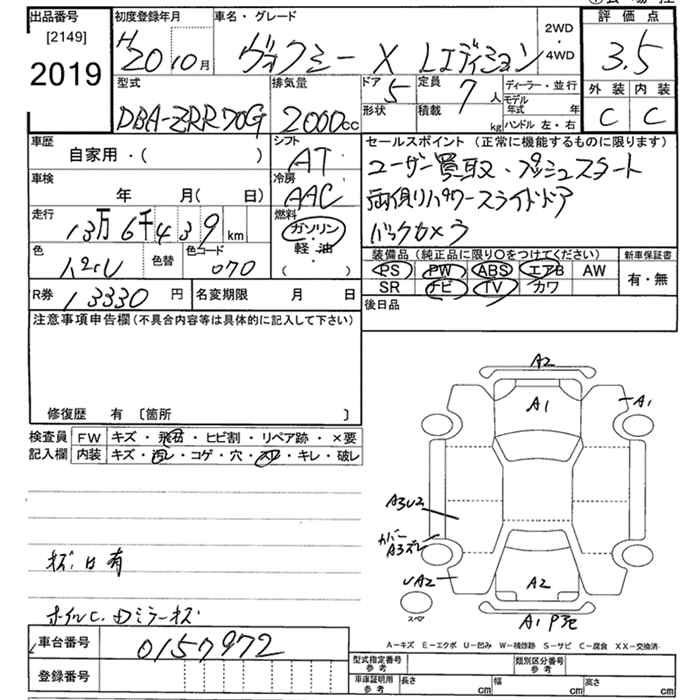 出品番号 初度登録年月 車名・グレード 2WD・4WD 評価点
[2149] 2019 H20 10月 ヴォクシー X Lエディション 3.5
型式 排気量 ドア 5 形状 定員 7人 積載 kg ディーラー・並行 モデル年式 年 ハンドル 左・右 外装 内装
DBA-ZRR70G 2000cc C C
車歴 自家用・( ) シフト AT セールスポイント(正常に機能するものに限ります)
車検 年 月( 日) 冷房 AAC ユーザー買取・プッシュスタート
両側パワースライドドア
走行 13万6千439km 燃料 ガソリン・軽油 バックカメラ
色 パール 色替 色コード 070 ( )
装備品(純正品に限り〇をつけてください) 新車保証書
PS PW ABS エアB AW 有・無
SR ナビ TV カワ
R券 13330円 名変期限 月 日 後日品
注意事項申告欄(不具合内容等は具体的に記入して下さい)
修復歴 有 〔箇所 〕
検査員 FW キズ・飛石・ヒビ割・リペア跡・×要
記入欄 内装 キズ・汚レ・コゲ・穴・スレ・キレ・破レ
キズ、凹有
ホイルC、Dミラーキズ
A2
A1
A1
A3U2
カバー
A3ズレ
UA2
A2
スペア
A1 P
A-キズ E-エクボ U-凹み W-補修跡 S-サビ C-腐食 XX-交換済
車台番号 0157972
登録番号
型式指定番号 参考 類別区分番号 参考
車庫証明用 参考 長さ cm 幅 cm 高さ cm